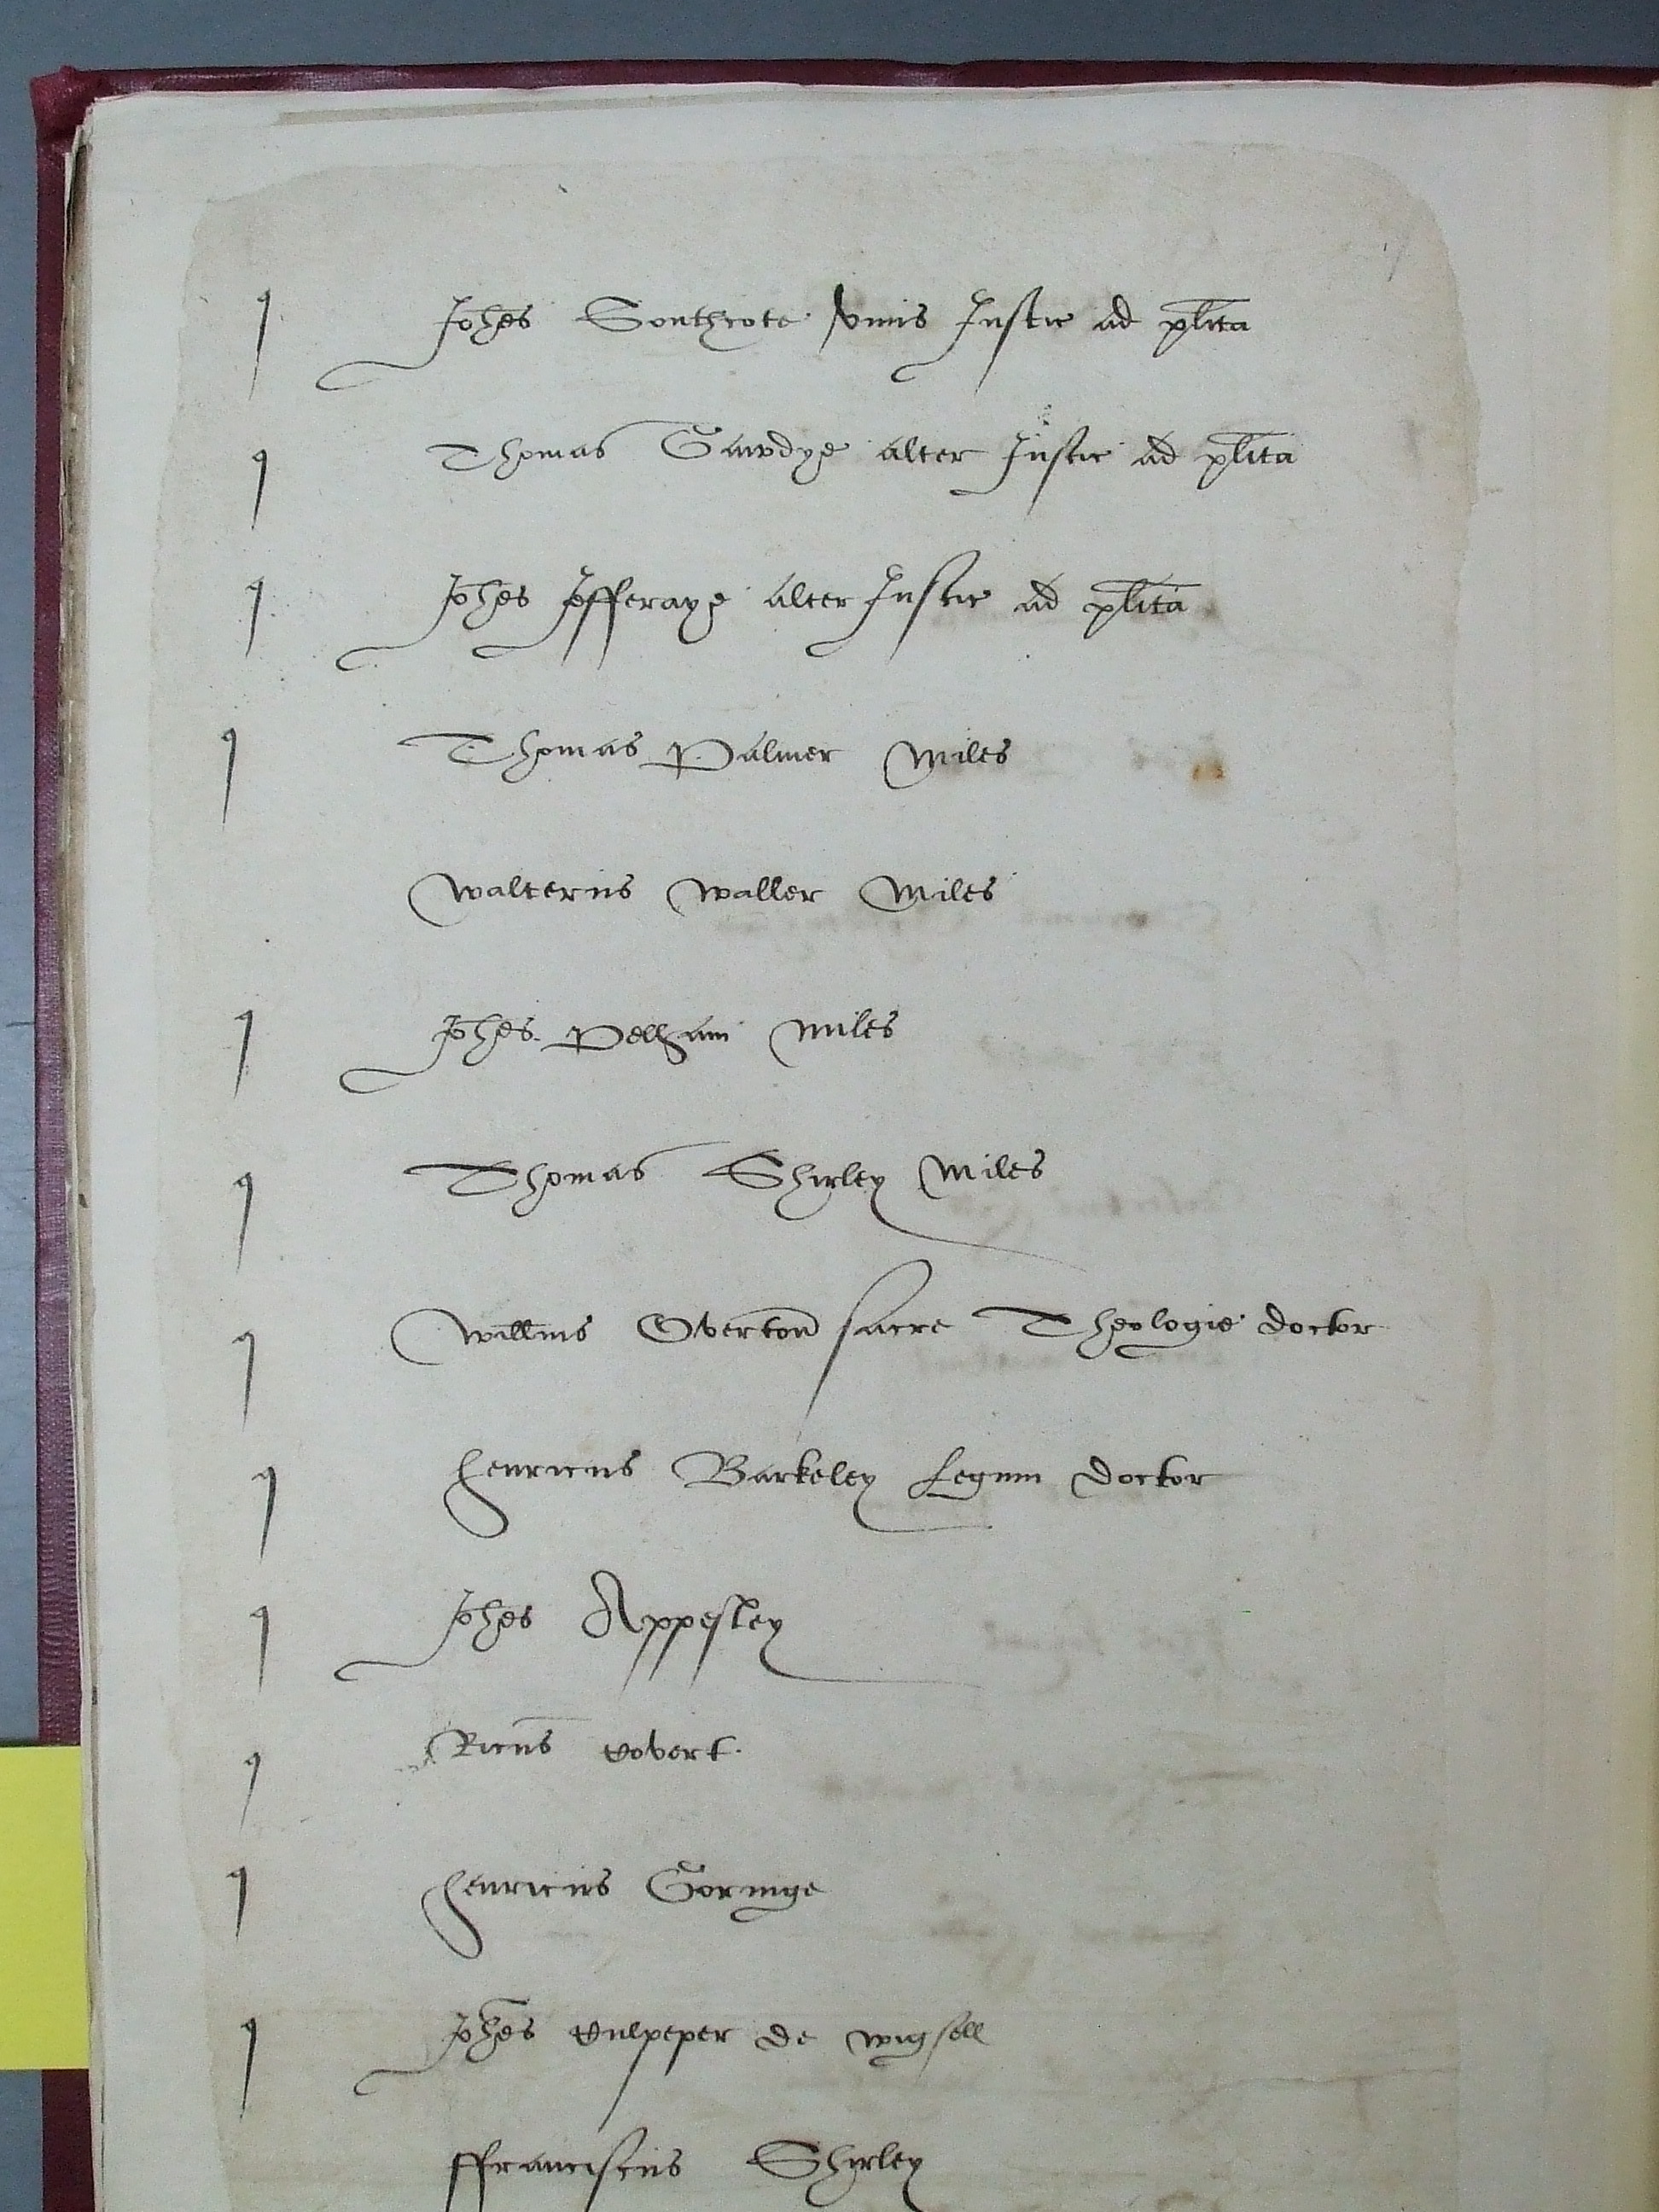 Johes Southcote vnus Justic ad plita
Thomas Gawdye alter Justic ad plita
Johes Jefferaye alter Justic ad plita
Thomas Palmer Miles
Walterus Waller Miles
Johes Pelham Miles
Thomas Shirley Miles
Willms Overton sacre Theologie doctor
Henricus Barkeley Legum doctor
Johes Appesley
Ricus Covert
Henricus Goringe
Johes Culpeper de Wigsell
ffranciscus Shirley